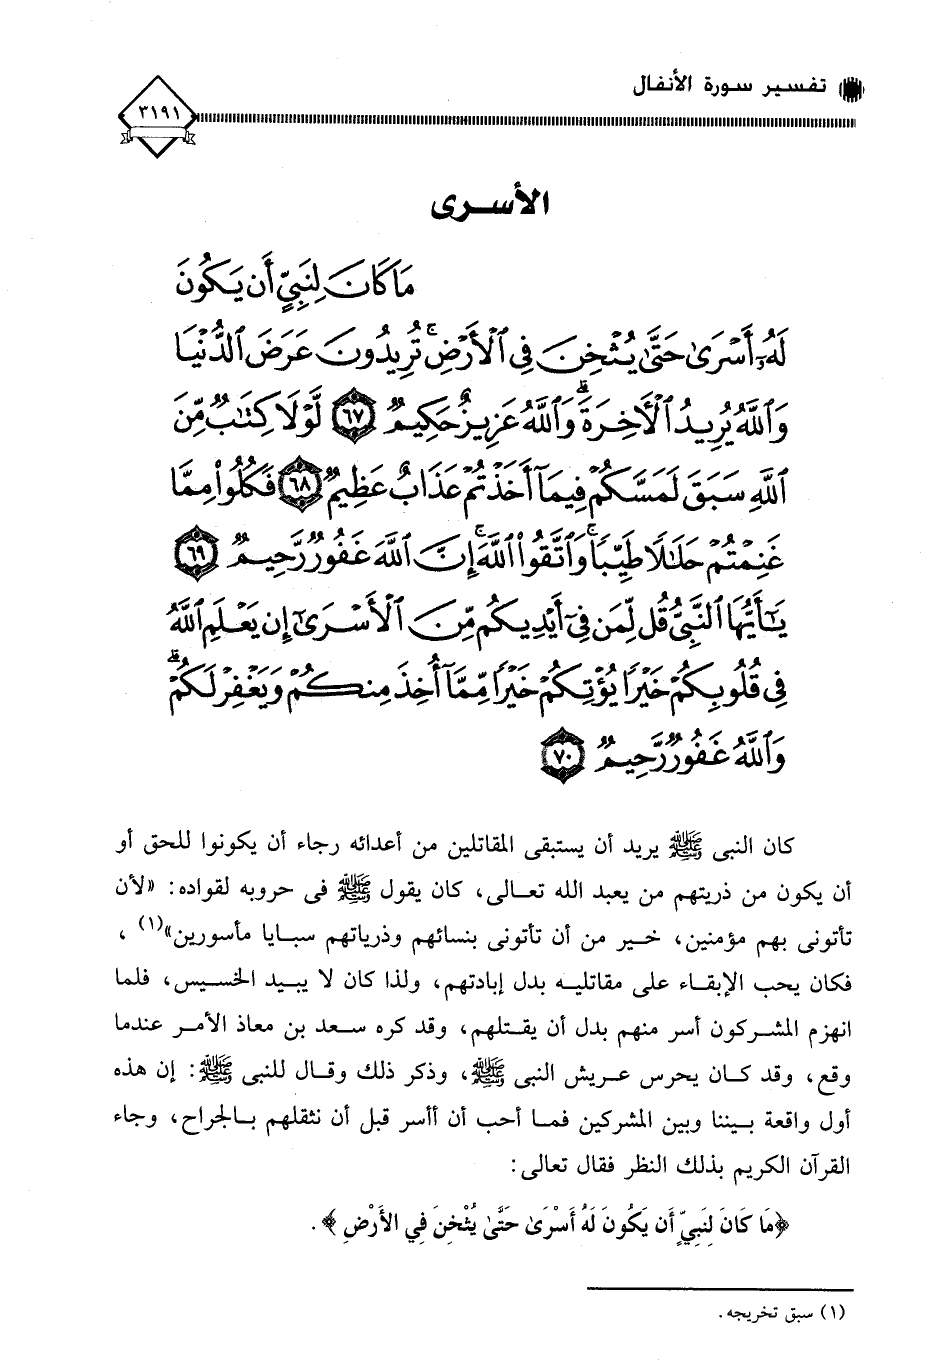 تفسير سورة الأنفال
٣١٩١
الأسرى
مَا كَانَ لِنَبِيٍّ أَن يَكُونَ
لَهُۥٓ أَسْرَىٰ حَتَّىٰ يُثْخِنَ فِي ٱلْأَرْضِ ۚ تُرِيدُونَ عَرَضَ ٱلدُّنْيَا
وَٱللَّهُ يُرِيدُ ٱلْأَخِرَةَ ۗ وَٱللَّهُ عَزِيزٌ حَكِيمٌ ﴿٦٧﴾ لَّوْلَا كِتَٰبٌ مِّنَ
ٱللَّهِ سَبَقَ لَمَسَّكُمْ فِيمَآ أَخَذْتُمْ عَذَابٌ عَظِيمٌ ﴿٦٨﴾ فَكُلُوا۟ مِمَّا
غَنِمْتُمْ حَلَٰلًا طَيِّبًا ۚ وَٱتَّقُوا۟ ٱللَّهَ ۚ إِنَّ ٱللَّهَ غَفُورٌ رَّحِيمٌ ﴿٦٩﴾
يَٰٓأَيُّهَا ٱلنَّبِيُّ قُل لِّمَن فِيٓ أَيْدِيكُم مِّنَ ٱلْأَسْرَىٰٓ إِن يَعْلَمِ ٱللَّهُ
فِي قُلُوبِكُمْ خَيْرًا يُؤْتِكُمْ خَيْرًا مِّمَّآ أُخِذَ مِنكُمْ وَيَغْفِرْ لَكُمْ ۗ
وَٱللَّهُ غَفُورٌ رَّحِيمٌ ﴿٧٠﴾
كان النبى ﷺ يريد أن يستبقى المقاتلين من أعدائه رجاء أن يكونوا للحق أو
أن يكون من ذريتهم من يعبد الله تعالى، كان يقول ﷺ فى حروبه لقواده: «لأن
تأتونى بهم مؤمنين، خير من أن تأتونى بنسائهم وذرياتهم سبايا مأسورين»(١) ،
فكان يحب الإبقاء على مقاتليه بدل إبادتهم، ولذا كان لا يبيد الخسيس، فلما
انهزم المشركون أسر منهم بدل أن يقتلهم، وقد كره سعد بن معاذ الأمر عندما
وقع، وقد كان يحرس عريش النبى ﷺ، وذكر ذلك وقال للنبى ﷺ: إن هذه
أول واقعة بيننا وبين المشركين فما أحب أن أأسر قبل أن نثقلهم بالجراح، وجاء
القرآن الكريم بذلك النظر فقال تعالى:
﴿مَا كَانَ لِنَبِيٍّ أَن يَكُونَ لَهُ أَسْرَىٰ حَتَّىٰ يُثْخِنَ فِي الأَرْضِ ﴾ .
(١) سبق تخريجه .